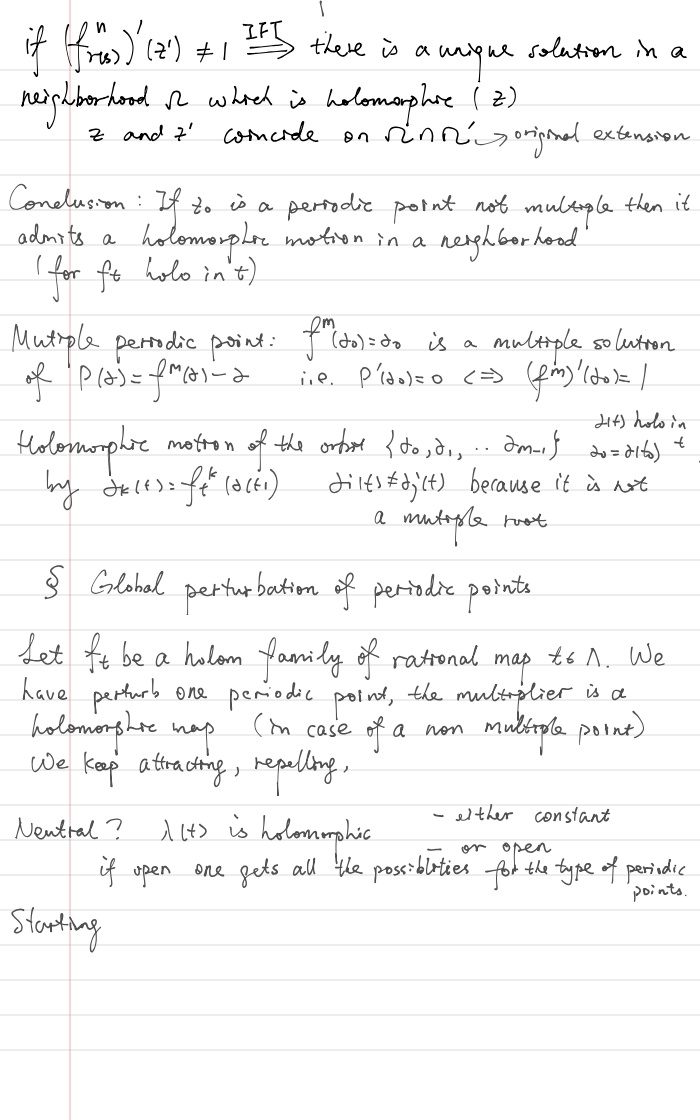 if (f^n_{r(s)})'(z') ≠ 1 IFT ⟹ there is a unique solution in a
neighborhood Ω which is holomorphic (z)
z and z' coincide on Ω∩Ω' → original extension
Conclusion: If z₀ is a periodic point not multiple then it
admits a holomorphic motion in a neighborhood
(for ft holo in t)
Mutiple periodic point: f^m(z₀)=z₀ is a multiple solution
of P(z)=f^m(z)-z i.e. P'(z₀)=0 <=> (f^m)'(z₀)=1
Holomorphic motion of the orbit {z₀,z₁,..z_{m-1}} z(t) holo in t
z₀=z(t₀)
by z_k(t)=f_t^k(z(t)) z_i(t)≠z_j(t) because it is not
a mutiple root
§ Global perturbation of periodic points
Let f_t be a holom family of rational map t∈Λ. We
have perturb one periodic point, the multiplier is a
holomorphic map (in case of a non multiple point)
We keep attracting, repelling,
Neutral? λ(t) is holomorphic - either constant
- or open
if open one gets all the possiblities for the type of periodic
points.
Starting